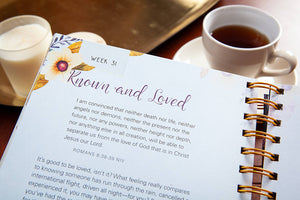 WEEK 31
Known and Loved
I am convinced that neither death nor life, neither
angels nor demons, neither the present nor the
future, nor any powers, neither height nor depth,
nor anything else in all creation, will be able to
separate us from the love of God that is in Christ
Jesus our Lord.
ROMANS 8:38-39 NIV
It's good to be loved, isn't it? What feeling really compares
to knowing someone has run through the rain, cancelled
international flight, driven all night—for you?
experienced it, you may have
you've had the